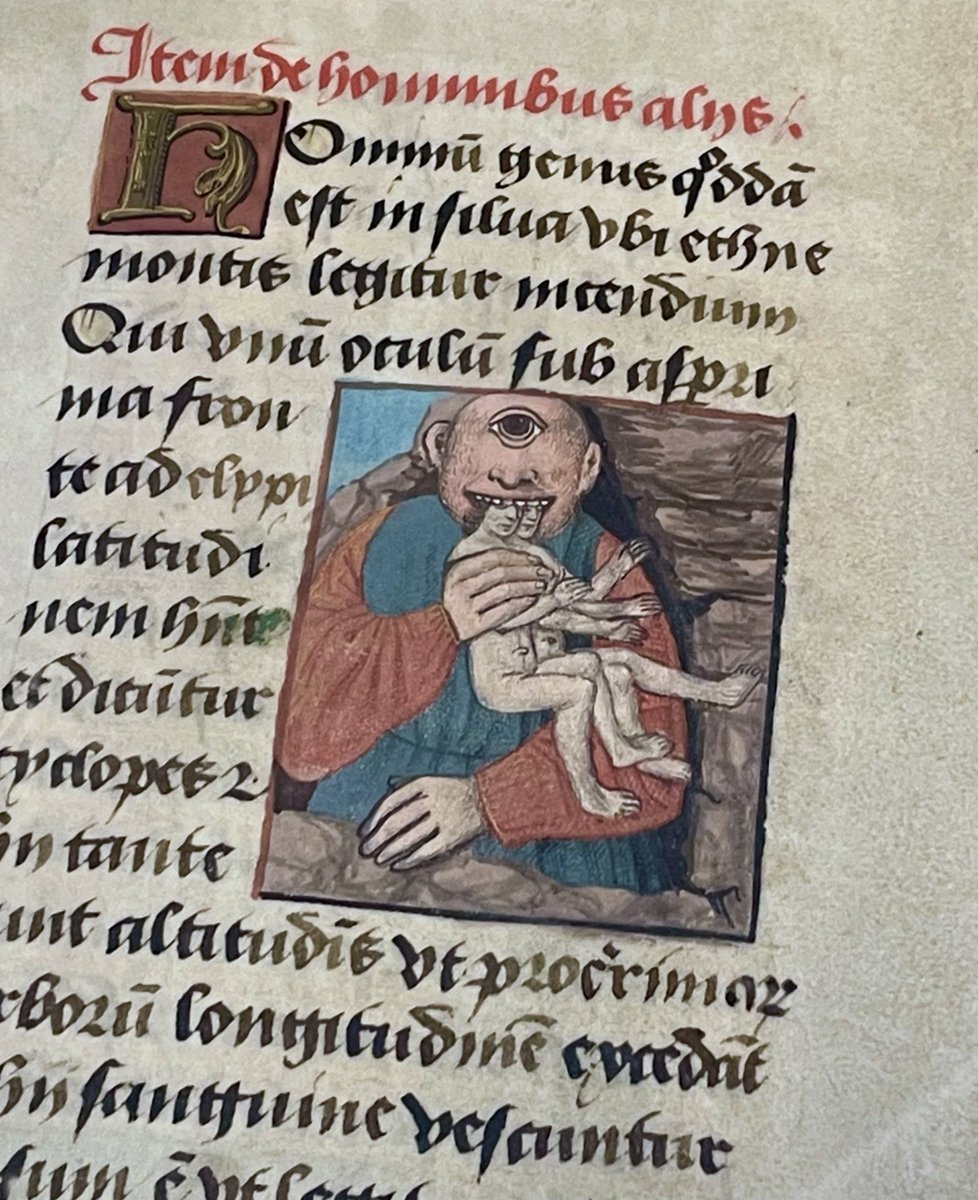 Item de hominibus alijs.
Hominū genus qͦddā
est in silua vbi ethne
montis legitur incendium
Qui vnū oculū sub asperi
ma fron
te ad clypi
latitudi
nem hn̄t
et dicūtur
cyclopes ⁊
hn̄ tante
sunt altitudīs vt procerimaꝝ
arborū longitudinē excedāt
hn̄ sanguine vescuntur
sum ē vt